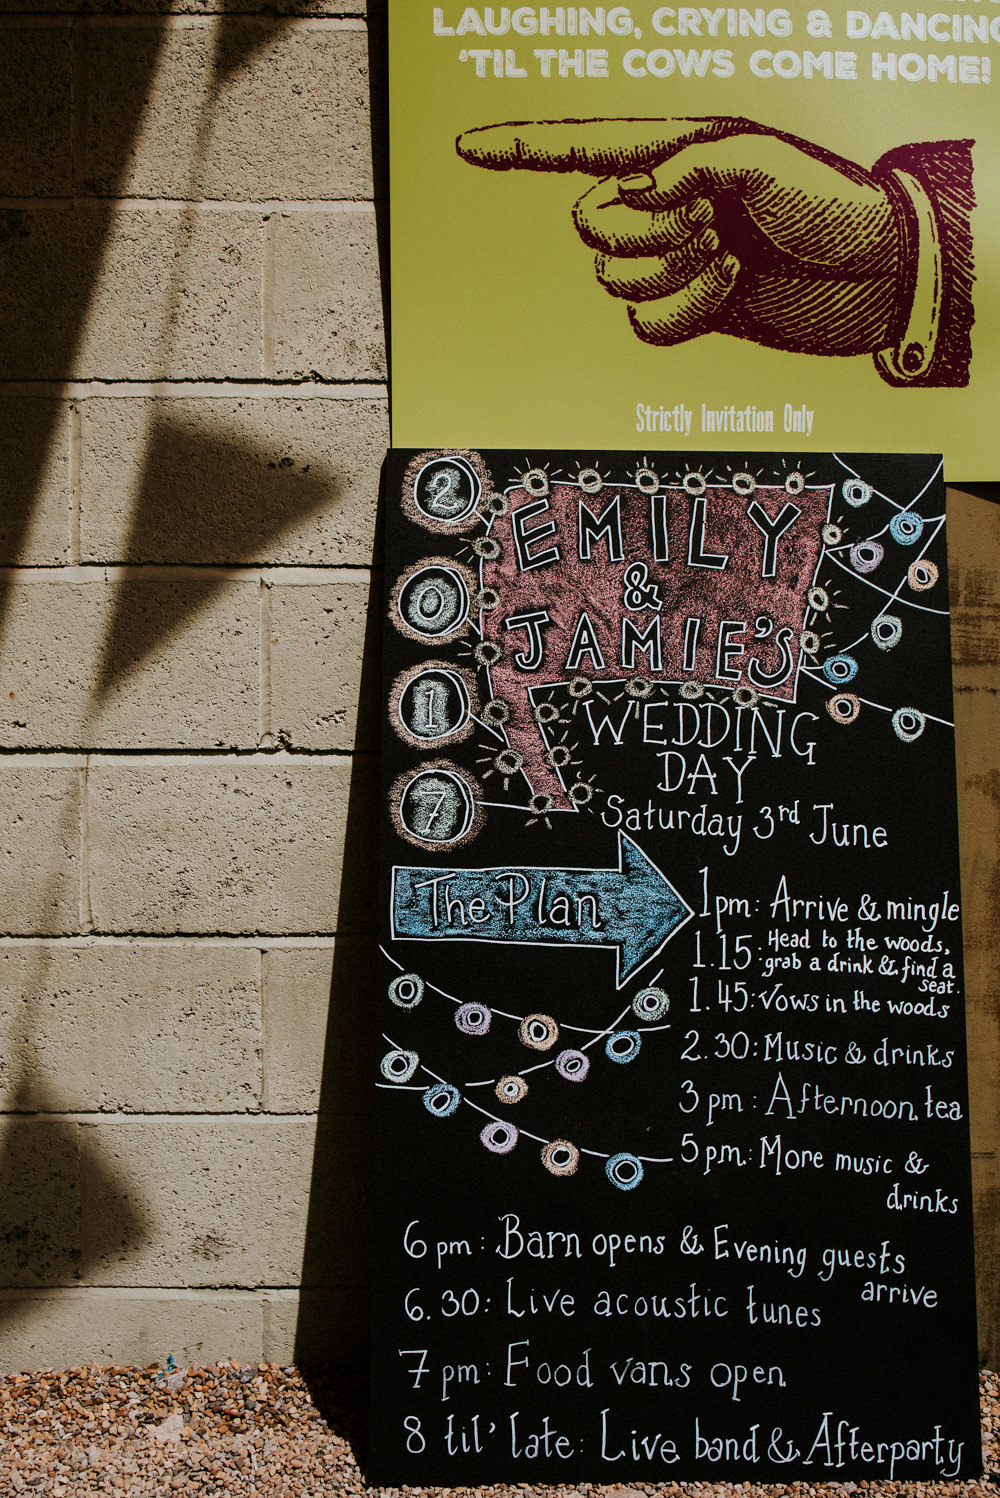 LAUGHING, CRYING & DANCING
'TIL THE COWS COME HOME!
Strictly Invitation Only
2
0
1
7
EMILY
&
JAMIE'S
WEDDING
DAY
Saturday 3rd June
The Plan
1pm: Arrive & mingle
1.15: Head to the woods,
grab a drink & find a
seat.
1.45: Vows in the woods
2.30: Music & drinks
3pm: Afternoon tea
5pm: More music &
drinks
6pm: Barn opens & Evening guests
arrive
6.30: Live acoustic tunes
7pm: Food vans open
8 til' late: Live band & Afterparty